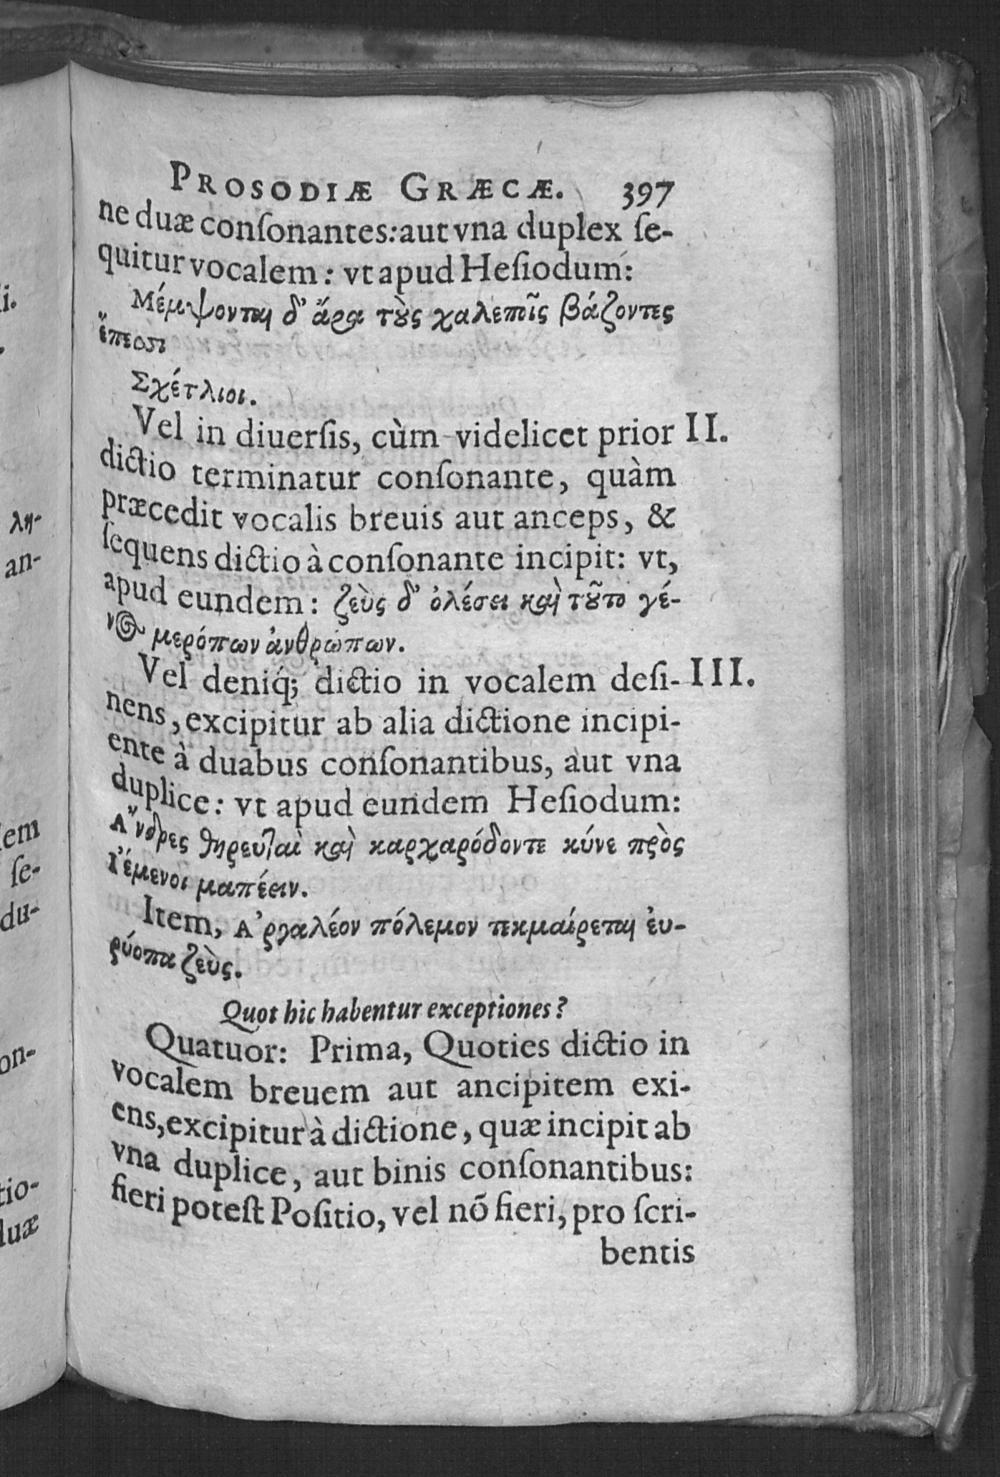 PROSODIÆ GRÆCÆ. 397
ne duæ conſonantes: aut vna duplex ſe-
quitur vocalem: vt apud Heſiodum:
Μέμψονται δ' ἄρα τοὺς χαλεποῖς βάζοντες
ἔπεσσι
Σχέτλιοι.
Vel in diuerſis, cùm videlicet prior II.
dictio terminatur conſonante, quàm
præcedit vocalis breuis aut anceps, &
ſequens dictio à conſonante incipit: vt,
apud eundem: ζεὺς δ' ὀλέσει καὶ τοῦτο γέ-
νος μερόπων ἀνθρώπων.
Vel deniq; dictio in vocalem deſi- III.
nens, excipitur ab alia dictione incipi-
ente à duabus conſonantibus, aut vna
duplice: vt apud eundem Heſiodum:
Ἄνδρες θηρευταὶ καὶ καρχαρόδοντε κύνε πρὸς
Ἱέμενοι μαπέειν.
Item, Ἀργαλέον πόλεμον τεκμαίρεται ἐυ-
ρύοπα ζεὺς.
Quot hic habentur exceptiones?
Quatuor: Prima, Quoties dictio in
vocalem breuem aut ancipitem exi-
ens, excipitur à dictione, quæ incipit ab
vna duplice, aut binis conſonantibus:
fieri poteſt Poſitio, vel nō fieri, pro ſcri-
bentis
i.
λη-
an-
dem
ſe-
du-
on-
tio-
duæ